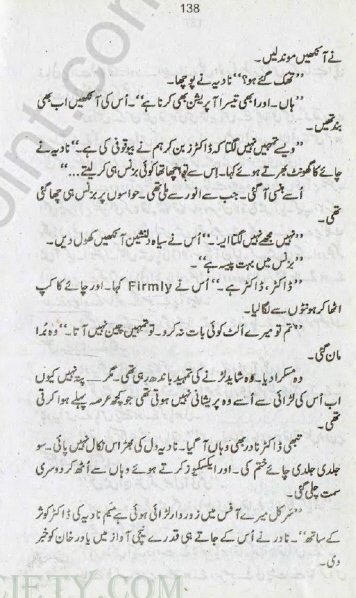 138
نے آنکھیں موندلیں۔
”تھک گئے ہو؟“ نادیہ نے پوچھا۔
”ہاں۔ اور ابھی تیسرا آپریشن بھی کرنا ہے“۔ اُس کی آنکھیں اب بھی
بند تھیں۔
”ویسے تمہیں نہیں لگتا کہ ڈاکٹر بن کر ہم نے بیوقوفی کی ہے۔“ نادیہ نے
چائے کا گھونٹ بھرتے ہوئے کہا۔ اِس سے تو اچھا تھا کوئی بزنس ہی کرلیتے...“
اُسے ہنسی آ گئی۔ جب سے انور سے ملی تھی۔ حواسوں پر بزنس ہی چھا گئی
تھی۔
”نہیں مجھے نہیں لگتا ایسا۔“ اُس نے سیاہ دلنشین آنکھیں کھول دیں۔
”بزنس میں بہت پیسہ ہے“۔
”ڈاکٹر، ڈاکٹر ہے۔“ اُس نے Firmly کہا۔ اور چائے کا کپ
اٹھا کر ہونٹوں سے لگا لیا۔
”تم تو میرے اُلٹ کوئی بات نہ کرو۔ تو تمھیں چین نہیں آتا۔“ وہ بُرا
مان گئی۔
وہ مسکرا دیا۔ وہ شاید لڑنے کی تمہید باندھ رہی تھی۔ مگر— پتہ نہیں کیوں
اب اُس کی لڑائی سے اُسے وہ پریشانی نہیں ہوتی تھی جو کچھ عرصہ پہلے ہوا کرتی
تھی۔
تبھی ڈاکٹر نادر بھی وہاں آ گیا۔ نادیہ دل کی بھڑاس نکال نہیں پائی۔ سو
جلدی جلدی چائے ختم کی۔ اور ایکسکیوز کرتے ہوئے وہاں سے اُٹھ کر دوسری
سمت چلی گئی۔
”سَر کل میرے آفس میں زوردار لڑائی ہوئی ہے میم نادیہ کی ڈاکٹر کوثر
کے ساتھ“۔ نادر نے اُس کے جاتے ہی قدرے نیچی آواز میں یاور خان کو خبر
دی۔
CIETY.COM
oint.com